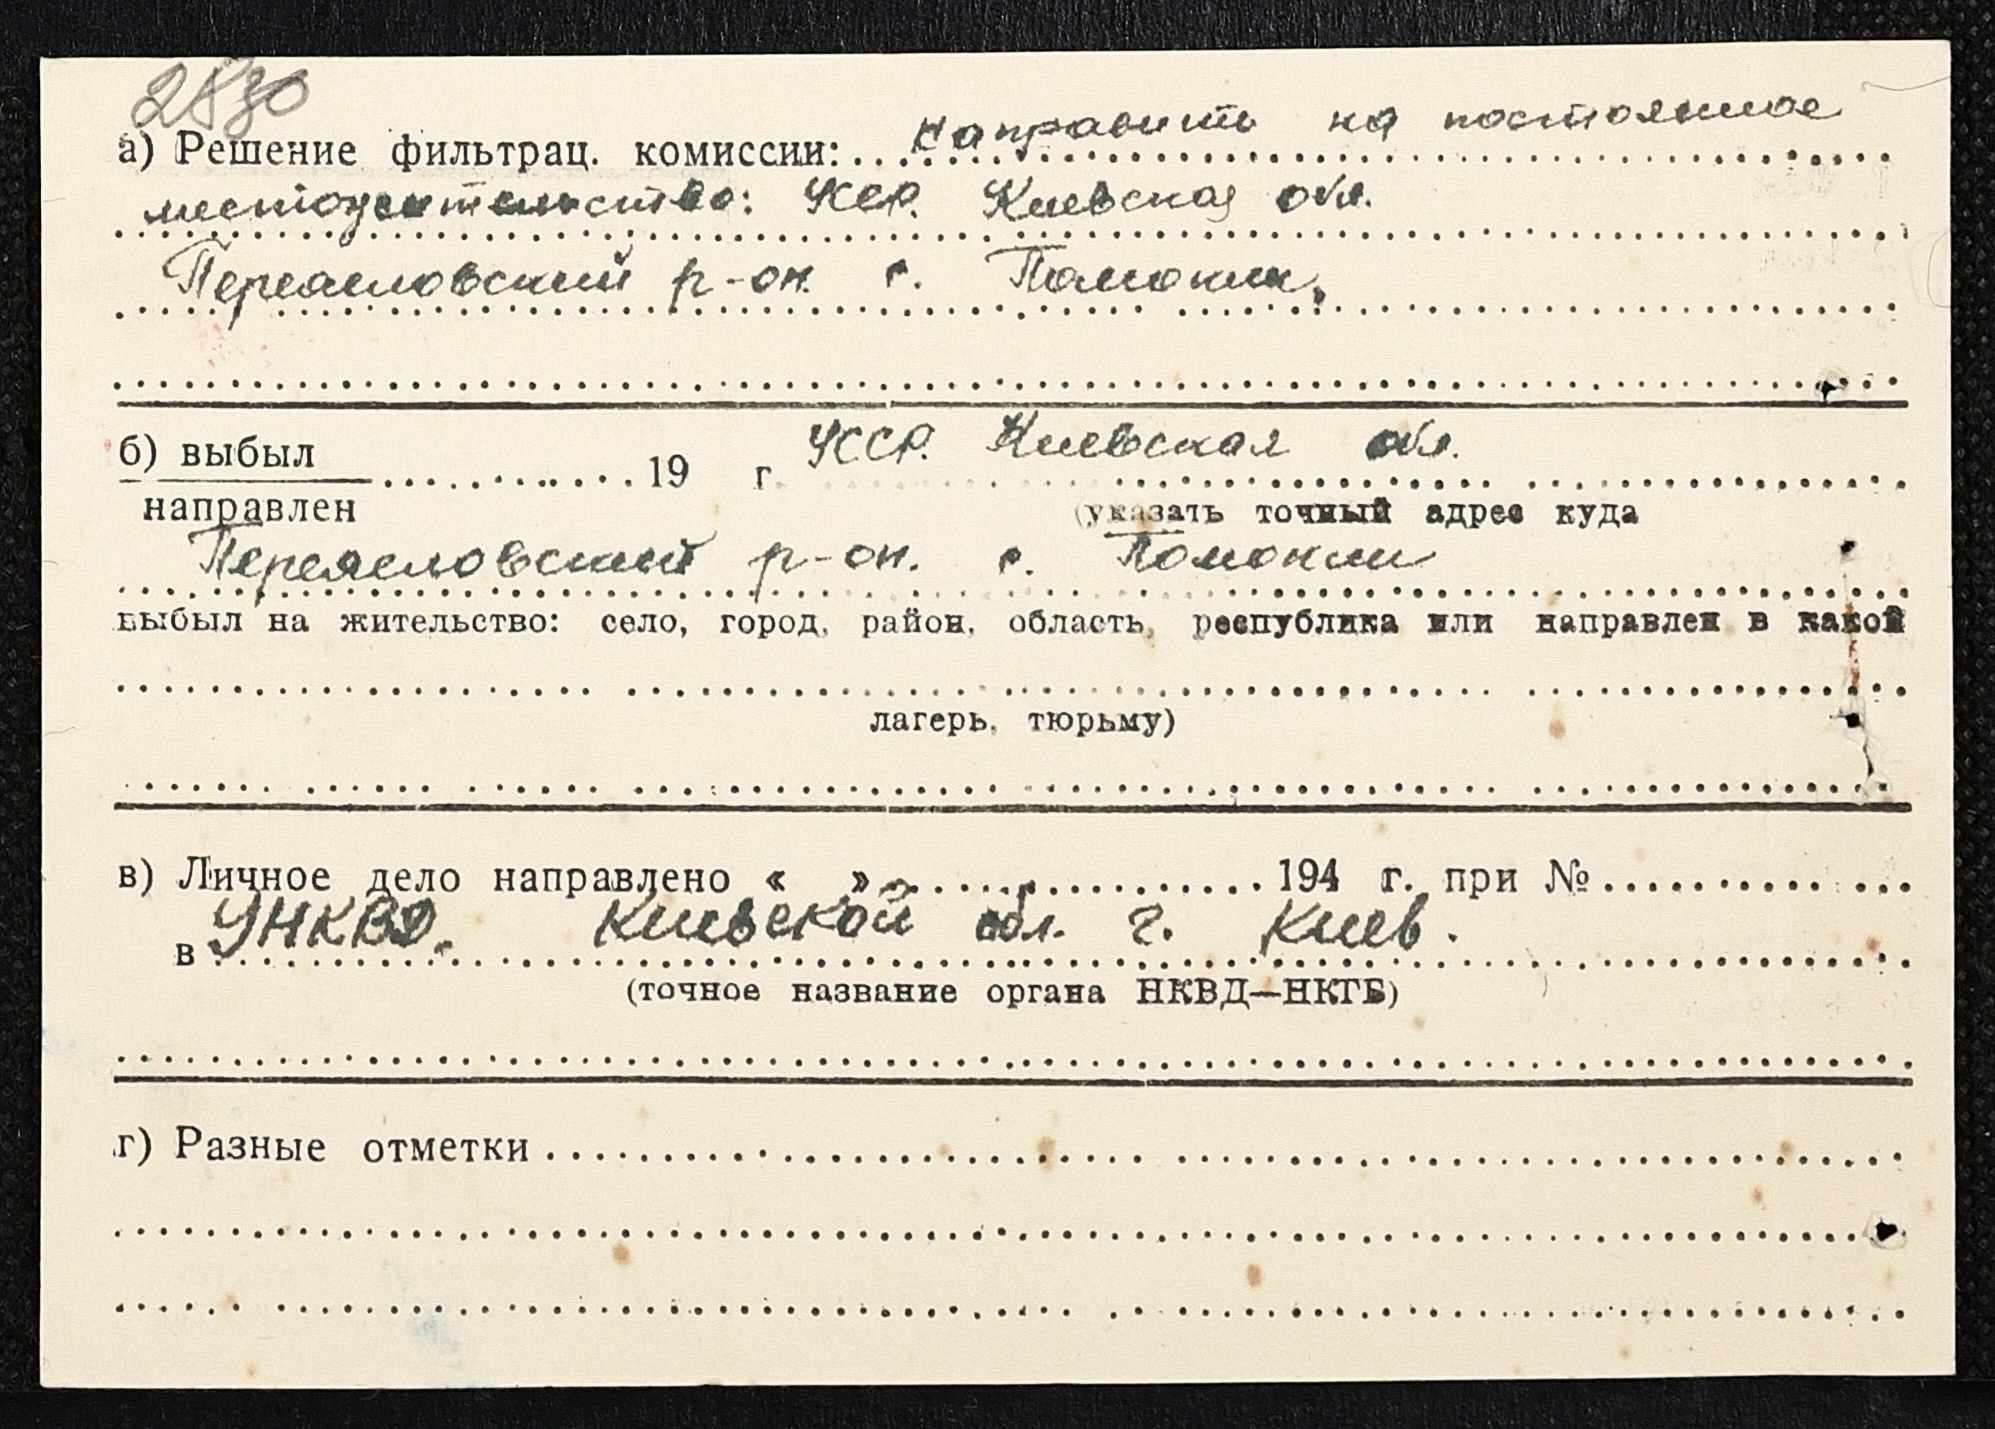 2830
а) Решение фильтрац. комиссии: направить на постоянное
местожительство: УССР. Киевская обл.
Переясловский р-он с. Помокли.
б) выбыл 19 г. УССР. Киевская обл.
направлен (указать точный адрес куда
Переясловский р-он. с. Помокли
выбыл на жительство: село, город, район, область, республика или направлен в какой
лагерь, тюрьму)
в) Личное дело направлено « » 194 г. при №
в УНКВД. Киевской обл. г. Киев.
(точное название органа НКВД—НКГБ)
г) Разные отметки